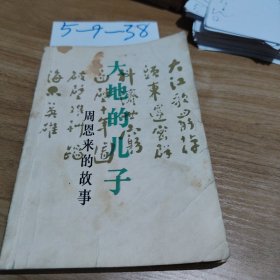 5-9-38
大地的儿子
周恩来的故事
大江歌罷棹
頭東邃密群
科濟世窮
面壁十年圖
破壁難酬蹈
海亦英雄